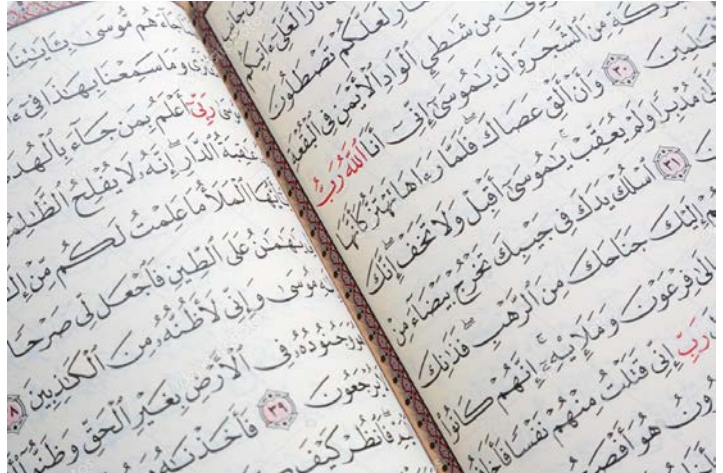 لَعَلَّكُمْ تَصْطَلُونَ
مِن شَٰطِئِ ٱلْوَادِ ٱلْأَيْمَنِ فِى ٱلْبُقْعَةِ
مِنَ ٱلشَّجَرَةِ أَن يَٰمُوسَىٰٓ إِنِّىٓ أَنَا ٱللَّهُ رَبُّ
ٱلْعَٰلَمِينَ ٣٠ وَأَنْ أَلْقِ عَصَاكَ فَلَمَّا رَءَاهَا تَهْتَزُّ كَأَنَّهَا
مُدْبِرًا وَلَمْ يُعَقِّبْ يَٰمُوسَىٰٓ أَقْبِلْ وَلَا تَخَفْ إِنَّكَ
٣١ ٱسْلُكْ يَدَكَ فِى جَيْبِكَ تَخْرُجْ بَيْضَآءَ مِنْ
إِلَيْكَ جَنَاحَكَ مِنَ ٱلرَّهْبِ فَذَٰنِكَ
إِلَىٰ فِرْعَوْنَ وَمَلَإِي۟هِۦٓ إِنَّهُمْ كَانُوا۟
رَبِّ إِنِّى قَتَلْتُ مِنْهُمْ نَفْسًا
هُوَ أَفْصَحُ
مُّوسَىٰ بِـَٔايَٰتِنَا
وَمَا سَمِعْنَا بِهَٰذَا فِىٓ
رَبِّىٓ أَعْلَمُ بِمَن جَآءَ بِٱلْهُدَىٰ
عَٰقِبَةُ ٱلدَّارِ إِنَّهُۥ لَا يُفْلِحُ ٱلظَّٰلِمُونَ
ٱلْمَلَأُ مَا عَلِمْتُ لَكُم مِّنْ إِلَٰهٍ
يَٰهَٰمَٰنُ عَلَى ٱلطِّينِ فَٱجْعَل لِّى صَرْحًا
مُوسَىٰ وَإِنِّى لَأَظُنُّهُۥ مِنَ ٱلْكَٰذِبِينَ
وَجُنُودُهُۥ فِى ٱلْأَرْضِ بِغَيْرِ ٱلْحَقِّ وَظَنُّوٓا۟
يُرْجَعُونَ ٣٩ فَأَخَذْنَٰهُ
فَٱنظُرْ كَيْفَ